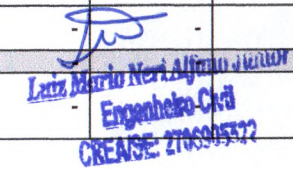 Luiz Mario Neri Alfano Junior
Engenheiro Civil
CREA/SE: 2706905522